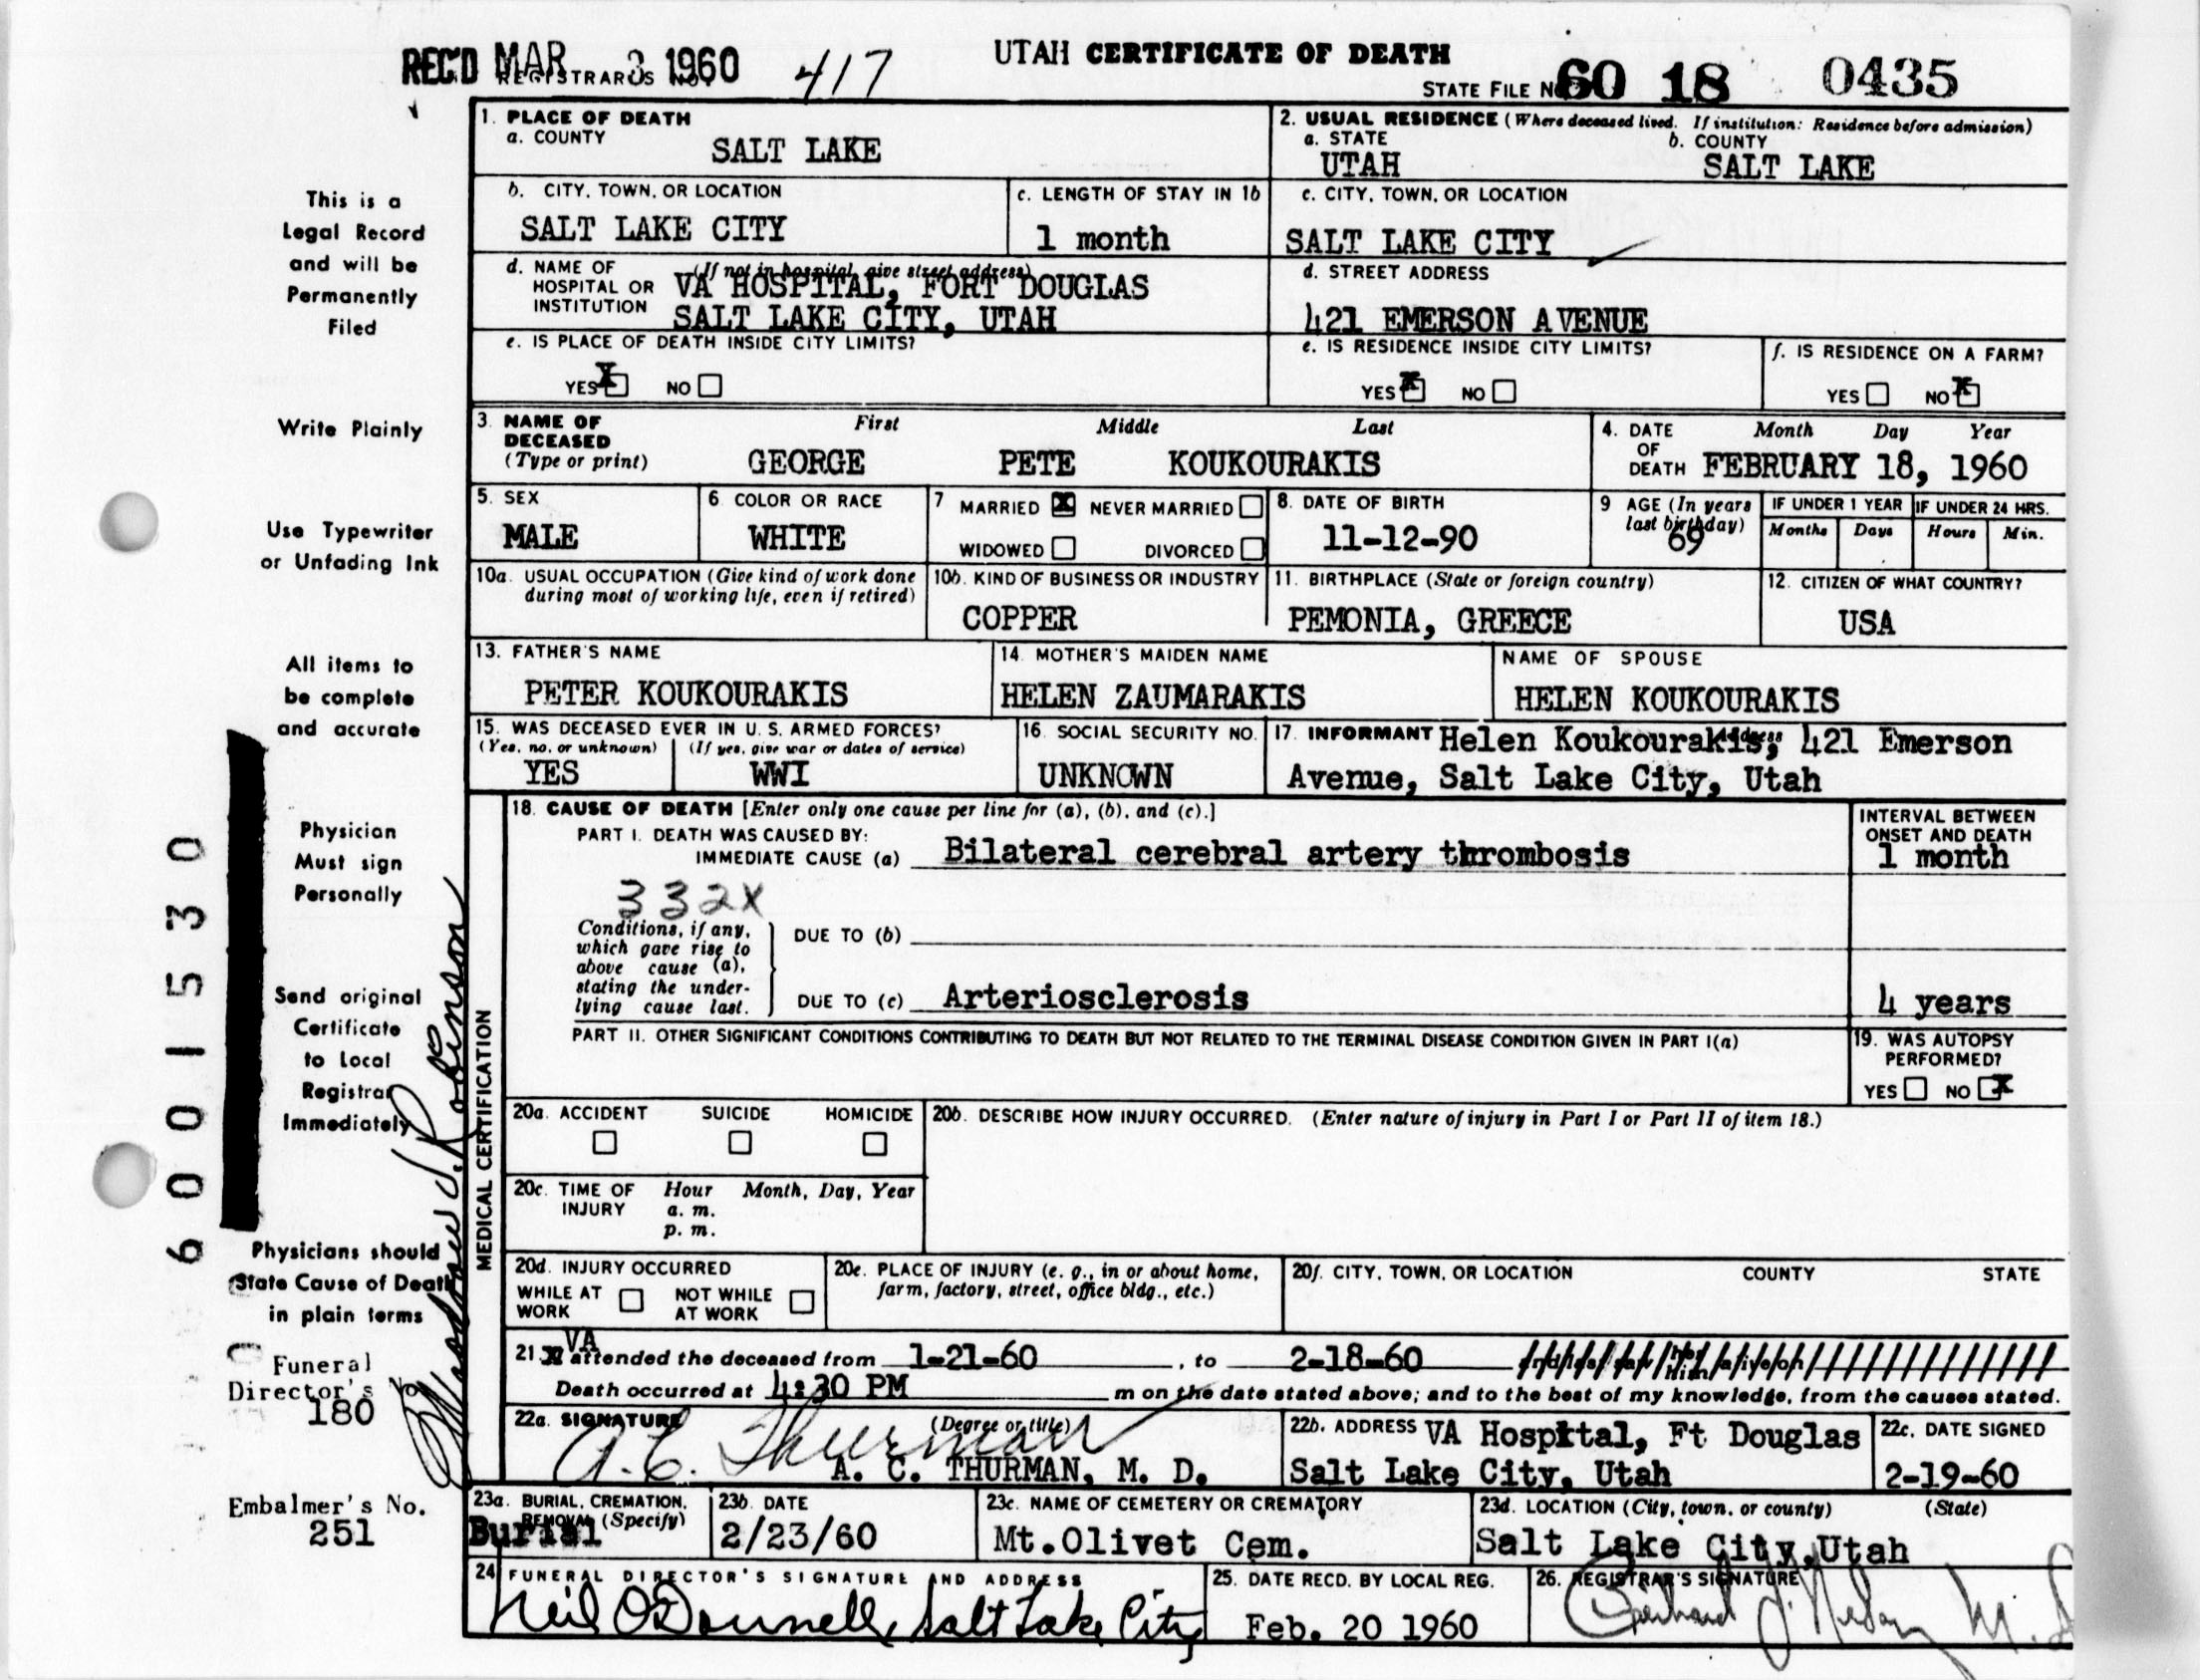 REC'D MAR 3 1960
REGISTRAR'S NO. 417
UTAH CERTIFICATE OF DEATH
STATE FILE NO. 60 18 0435
1. PLACE OF DEATH
a. COUNTY
SALT LAKE
2. USUAL RESIDENCE (Where deceased lived. If institution: Residence before admission)
a. STATE b. COUNTY
UTAH SALT LAKE
b. CITY, TOWN, OR LOCATION
SALT LAKE CITY
c. LENGTH OF STAY IN 1b
1 month
c. CITY, TOWN, OR LOCATION
SALT LAKE CITY
d. NAME OF HOSPITAL OR INSTITUTION (If not in hospital, give street address)
VA HOSPITAL, FORT DOUGLAS
SALT LAKE CITY, UTAH
d. STREET ADDRESS
421 EMERSON AVENUE
e. IS PLACE OF DEATH INSIDE CITY LIMITS?
YES X NO
e. IS RESIDENCE INSIDE CITY LIMITS?
YES X NO
f. IS RESIDENCE ON A FARM?
YES NO X
3. NAME OF DECEASED (Type or print)
First Middle Last
GEORGE PETE KOUKOURAKIS
4. DATE OF DEATH
Month Day Year
FEBRUARY 18, 1960
5. SEX
MALE
6. COLOR OR RACE
WHITE
7 MARRIED X NEVER MARRIED
WIDOWED DIVORCED
8. DATE OF BIRTH
11-12-90
9 AGE (In years last birthday)
69
IF UNDER 1 YEAR
Months Days
IF UNDER 24 HRS.
Hours Min.
10a. USUAL OCCUPATION (Give kind of work done during most of working life, even if retired)
10b. KIND OF BUSINESS OR INDUSTRY
COPPER
11. BIRTHPLACE (State or foreign country)
PEMONIA, GREECE
12. CITIZEN OF WHAT COUNTRY?
USA
13. FATHER'S NAME
PETER KOUKOURAKIS
14. MOTHER'S MAIDEN NAME
HELEN ZAUMARAKIS
NAME OF SPOUSE
HELEN KOUKOURAKIS
15. WAS DECEASED EVER IN U. S. ARMED FORCES?
(Yes, no, or unknown) (If yes, give war or dates of service)
YES WWI
16. SOCIAL SECURITY NO.
UNKNOWN
17. INFORMANT Address
Helen Koukourakis, 421 Emerson
Avenue, Salt Lake City, Utah
MEDICAL CERTIFICATION
18. CAUSE OF DEATH [Enter only one cause per line for (a), (b), and (c).]
PART I. DEATH WAS CAUSED BY:
IMMEDIATE CAUSE (a) Bilateral cerebral artery thrombosis
INTERVAL BETWEEN ONSET AND DEATH
1 month
332X
Conditions, if any, which gave rise to above cause (a), stating the underlying cause last.
DUE TO (b)
DUE TO (c) Arteriosclerosis
4 years
PART II. OTHER SIGNIFICANT CONDITIONS CONTRIBUTING TO DEATH BUT NOT RELATED TO THE TERMINAL DISEASE CONDITION GIVEN IN PART I(a)
19. WAS AUTOPSY PERFORMED?
YES NO X
20a. ACCIDENT SUICIDE HOMICIDE
20b. DESCRIBE HOW INJURY OCCURRED. (Enter nature of injury in Part I or Part II of item 18.)
20c. TIME OF INJURY
Hour Month, Day, Year
a. m.
p. m.
20d. INJURY OCCURRED
WHILE AT WORK NOT WHILE AT WORK
20e. PLACE OF INJURY (e. g., in or about home, farm, factory, street, office bldg., etc.)
20f. CITY, TOWN, OR LOCATION COUNTY STATE
21. VA attended the deceased from 1-21-60, to 2-18-60
Death occurred at 4:30 PM m on the date stated above; and to the best of my knowledge, from the causes stated.
22a. SIGNATURE (Degree or title)
A. C. Thurman
A. C. THURMAN, M. D.
22b. ADDRESS VA Hospital, Ft Douglas
Salt Lake City, Utah
22c. DATE SIGNED
2-19-60
23a. BURIAL, CREMATION, REMOVAL (Specify)
Burial
23b. DATE
2/23/60
23c. NAME OF CEMETERY OR CREMATORY
Mt.Olivet Cem.
23d. LOCATION (City, town, or county) (State)
Salt Lake City,Utah
24 FUNERAL DIRECTOR'S SIGNATURE AND ADDRESS
Neil O'Donnell, Salt Lake City
25. DATE RECD. BY LOCAL REG.
Feb. 20 1960
26. REGISTRAR'S SIGNATURE
This is a
Legal Record
and will be
Permanently
Filed
Write Plainly
Use Typewriter
or Unfading Ink
All items to
be complete
and accurate
Physician
Must sign
Personally
Send original
Certificate
to Local
Registrar
Immediately
Physicians should
State Cause of Death
in plain terms
Funeral
Director's No.
180
Embalmer's No.
251
6001530
Robinson